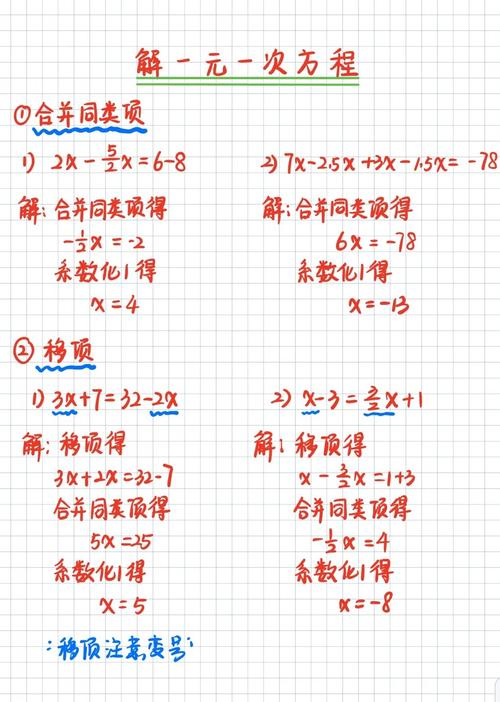 解一元一次方程
①合并同类项
1) 2x-5/2x=6-8
解:合并同类项得
-1/2x=-2
系数化1得
x=4
2) 7x-2.5x+3x-1.5x=-78
解:合并同类项得
6x=-78
系数化1得
x=-13
②移项
1) 3x+7=32-2x
解:移项得
3x+2x=32-7
合并同类项得
5x=25
系数化1得
x=5
2) x-3=3/2x+1
解:移项得
x-3/2x=1+3
合并同类项得
-1/2x=4
系数化1得
x=-8
:移项注意变号: